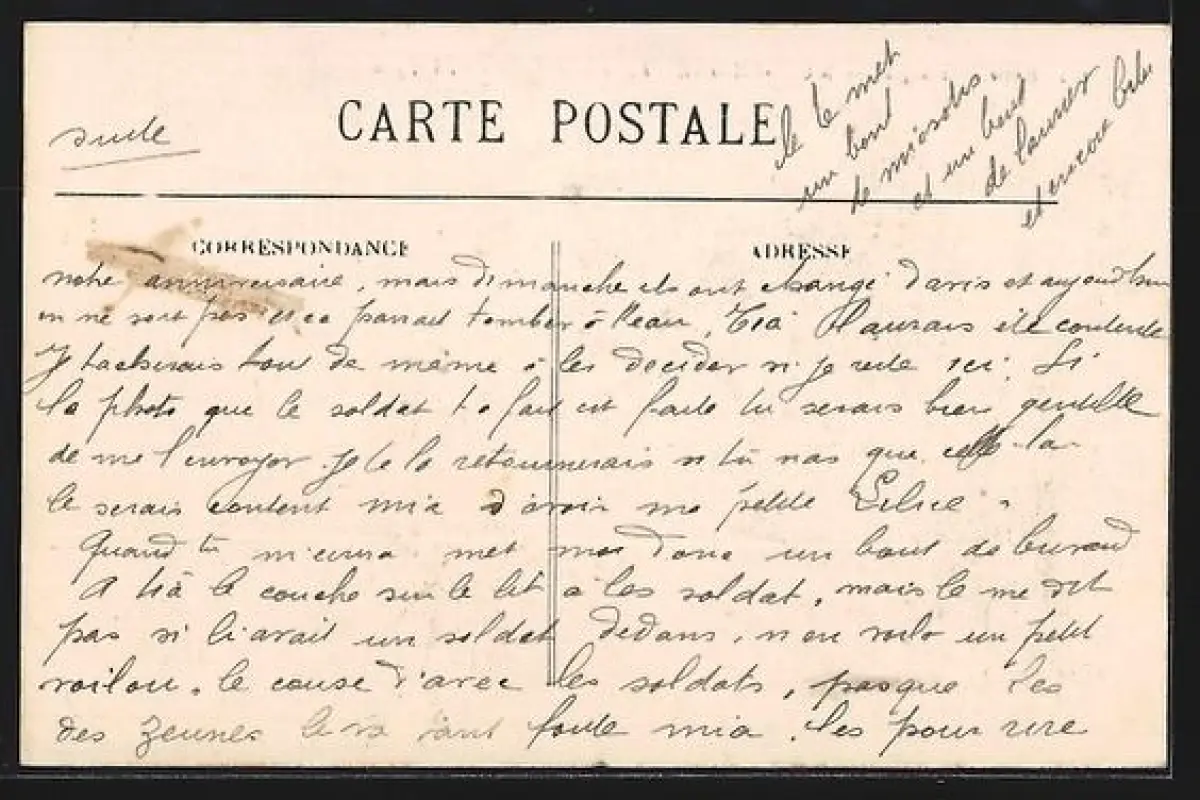 suite
CARTE POSTALE
le te met
un bout
de miosotis
et un bout
de laurier
et encore
CORRESPONDANCE
ADRESSE
notre anniversaire, mais Dimanche ils ont changé d'avis et aujourd'hui
en ne sont pas et ca parait tomber à l'eau, Tia Llaurais été contente
Je tacherais tout de même à les décider si je reste ici. Si
la photo que le soldat t'a fait est faite tu serais bien gentille
de me l'envoyer je te la retournerais si tu nas que celle-la
le serais content mia d'avoir ma petite
Quand tu met moi donc un bout de buvard
A tià le couche sur le lit a les soldat, mais le me dit
pas si li avait un soldat dedans, n'en voilo un petit
voilou. le cause d'avec les soldats, pasque les
des zeunes foute mia. les pour rire